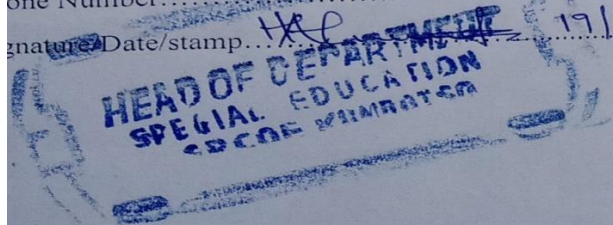 one Number..................
gnature/Date/stamp............ 19/
HEAD OF DEPARTMENT
SPECIAL EDUCATION